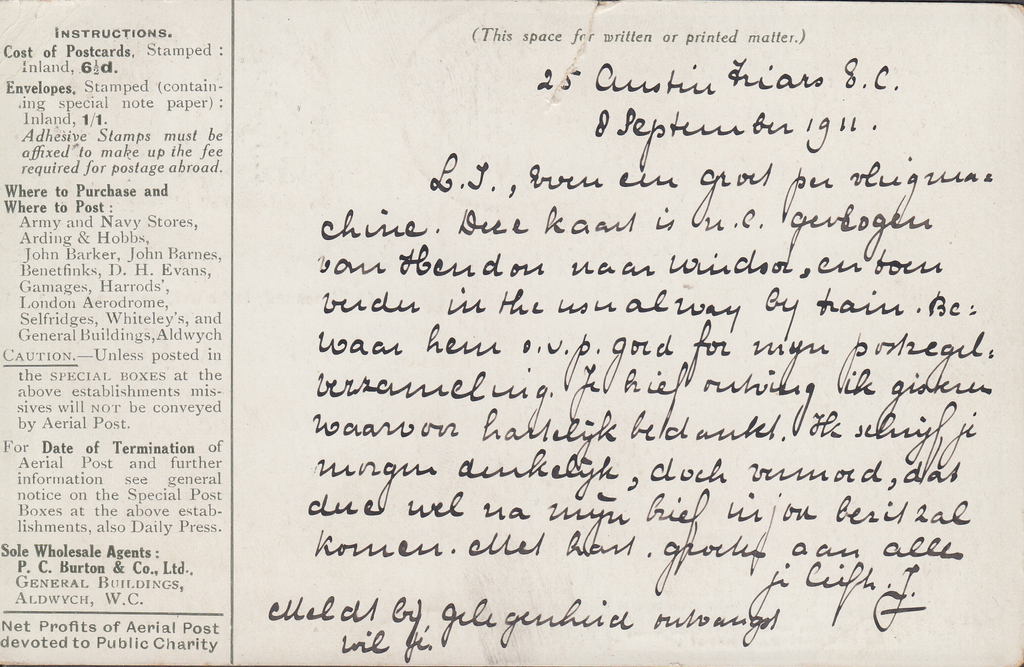 INSTRUCTIONS.
Cost of Postcards, Stamped :
Inland, 6½d.
Envelopes, Stamped (contain-
ing special note paper) :
Inland, 1/1.
Adhesive Stamps must be
affixed to make up the fee
required for postage abroad.
Where to Purchase and
Where to Post :
Army and Navy Stores,
Arding & Hobbs,
John Barker, John Barnes,
Benetfinks, D. H. Evans,
Gamages, Harrods',
London Aerodrome,
Selfridges, Whiteley's, and
General Buildings, Aldwych
CAUTION.—Unless posted in
the SPECIAL BOXES at the
above establishments mis-
sives will NOT be conveyed
by Aerial Post.
For Date of Termination of
Aerial Post and further
information see general
notice on the Special Post
Boxes at the above estab-
lishments, also Daily Press.
Sole Wholesale Agents :
P. C. Burton & Co., Ltd.,
GENERAL BUILDINGS,
ALDWYCH, W.C.
Net Profits of Aerial Post
devoted to Public Charity
(This space for written or printed matter.)
25 Austin Friars E.C.
8 September 1911.
L.J., Even een groet per vliegma=
chine. Deze kaart is n.l. gevlogen
van Hendon naar Windsor, en toen
verder in the usual way by train. Be=
waar hem s.v.p. goed for mijn postzegel=
verzameling. Je brief ontving ik gisteren
waarvoor hartelijk bedankt. Ik schrijf je
morgen denkelijk, doch vermoed, dat
deze wel na mijn brief in jou bezit zal
komen. Met hart. groeten aan allen
je liefh. J.
Meldt bij gelegenheid ontvangst
wil je.